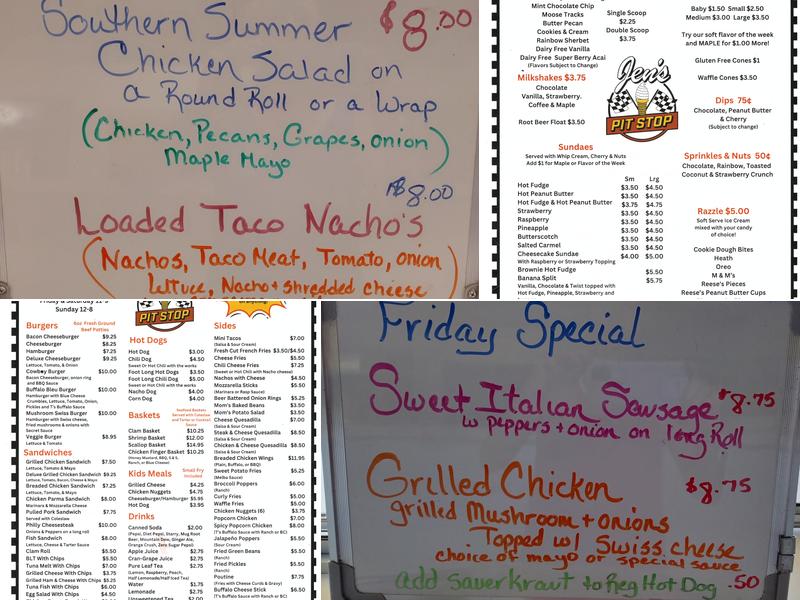 Southern Summer $8.00
Chicken Salad on
a Round Roll or a Wrap
(Chicken, Pecans, Grapes, onion)
Maple Mayo
$8.00
Loaded Taco Nacho's
(Nachos, Taco Meat, Tomato, onion
lettuce, Nacho + shredded cheese
Mint Chocolate Chip
Moose Tracks
Butter Pecan
Cookies & Cream
Rainbow Sherbet
Dairy Free Vanilla
Dairy Free Super Berry Acai
(Flavors Subject to Change)
Single Scoop
$2.25
Double Scoop
$3.75
Milkshakes $3.75
Chocolate
Vanilla, Strawberry.
Coffee & Maple
Root Beer Float $3.50
Jen's
PIT STOP
Baby $1.50 Small $2.50
Medium $3.00 Large $3.50
Try our soft flavor of the week
and MAPLE for $1.00 More!
Gluten Free Cones $1
Waffle Cones $3.50
Dips 75¢
Chocolate, Peanut Butter
& Cherry
(Subject to change)
Sundaes
Served with Whip Cream, Cherry & Nuts
Add $1 for Maple or Flavor of the Week
Sm Lrg
Hot Fudge $3.50 $4.50
Hot Peanut Butter $3.50 $4.50
Hot Fudge & Hot Peanut Butter $3.75 $4.75
Strawberry $3.50 $4.50
Raspberry $3.50 $4.50
Pineapple $3.50 $4.50
Butterscotch $3.50 $4.50
Salted Carmel $3.50 $4.50
Cheesecake Sundae $4.00 $5.00
With Raspberry or Strawberry Topping
Brownie Hot Fudge $5.50
Banana Split $5.75
Vanilla, Chocolate & Twist topped with
Hot Fudge, Pineapple, Strawberry and
Sprinkles & Nuts 50¢
Chocolate, Rainbow, Toasted
Coconut & Strawberry Crunch
Razzle $5.00
Soft Serve Ice Cream
mixed with your candy
of choice!
Cookie Dough Bites
Heath
Oreo
M & M's
Reese's Pieces
Reese's Peanut Butter Cups
Sunday 12-8
PIT STOP
Burgers
6oz Fresh Ground
Beef Patties
Bacon Cheeseburger $9.25
Cheeseburger $8.25
Hamburger $7.25
Deluxe Cheeseburger $9.25
Lettuce, Tomato, & Onion
Cowboy Burger $10.00
Bacon Cheeseburger, onion ring
and BBQ Sauce
Buffalo Bleu Burger $10.00
Hamburger with Blue Cheese
Crumbles, Lettuce, Tomato, Onion,
Pickles and T's Buffalo Sauce
Mushroom Swiss Burger $10.00
Hamburger with Swiss cheese,
fried mushrooms & onions with
Secret Sauce
Veggie Burger $8.95
Lettuce & Tomato
Sandwiches
Grilled Chicken Sandwich $7.50
Lettuce, Tomato & Mayo
Deluxe Grilled Chicken Sandwich $9.25
Lettuce, Tomato, Bacon, Cheese & Mayo
Breaded Chicken Sandwich $7.25
Lettuce, Tomato, & Mayo
Chicken Parma Sandwich $8.00
Marinara & Mozzarella Cheese
Pulled Pork Sandwich $7.75
Served with Coleslaw
Philly Cheesesteak $10.00
Onions & Peppers on a long roll
Fish Sandwich $8.00
Lettuce, Cheese & Tarter Sauce
Clam Roll $5.50
BLT With Chips $5.50
Tuna Melt With Chips $7.00
Grilled Cheese With Chips $3.75
Grilled Ham & Cheese With Chips $5.25
Tuna Fish With Chips $6.00
Egg Salad With Chips $4.50
Hot Dogs
Hot Dog $3.00
Chili Dog $4.50
Sweet Or Hot Chili with the works
Foot Long Hot Dogs $3.50
Foot Long Chili Dog $5.00
Sweet or Hot Chili with the works
Nacho Dog $4.00
Corn Dog $4.00
Baskets
Seafood Baskets
Served with Coleslaw
and Tarter or Cocktail
Sauce
Clam Basket $10.25
Shrimp Basket $12.00
Scallop Basket $14.95
Chicken Finger Basket $10.25
(Honey Mustard, BBQ, S & S,
Ranch, or Blue Cheese)
Kids Meals
Small Fry
Included
Grilled Cheese $4.25
Chicken Nuggets $4.75
Cheeseburger/Hamburger $5.95
Hot Dog $3.95
Drinks
Canned Soda $2.00
(Pepsi, Diet Pepsi, Starry, Mug Root
Beer, Mountain Dew, Ginger Ale,
Orange Crush, Zero Sugar Pepsi)
Apple Juice $2.75
Cran-Grape Juice $2.75
Pure Leaf Tea $2.75
(Lemon, Raspberry, Peach,
Half Lemonade/Half Iced Tea)
Water $1.75
Lemonade $2.00
Unsweetened Tea
Sides
Mini Tacos $7.00
(Salsa & Sour Cream)
Fresh Cut French Fries $3.50/$4.50
Cheese Fries $5.50
Chili Cheese Fries $7.25
(Sweet or Hot Chili with Nacho cheese)
Nachos with Cheese $4.50
Mozzarella Sticks $5.50
(Marinara or Rasp Sauce)
Beer Battered Onion Rings $5.25
Mom's Baked Beans $3.50
Mom's Potato Salad $3.50
Cheese Quesadilla $7.00
(Salsa & Sour Cream)
Steak & Cheese Quesadilla $8.50
(Salsa & Sour Cream)
Chicken & Cheese Quesadilla $8.50
(Salsa & Sour Cream)
Breaded Chicken Wings $11.95
(Plain, Buffalo, or BBQ)
Sweet Potato Fries $5.25
(Melba Sauce)
Broccoli Poppers $6.00
(Ranch)
Curly Fries $5.00
Waffle Fries $5.00
Chicken Nuggets (6) $3.75
Popcorn Chicken $7.00
Spicy Popcorn Chicken $8.00
(T's Buffalo Sauce with Ranch or BC)
Jalapeño Poppers $5.50
(Sour Cream)
Fried Green Beans $5.50
(Ranch)
Fried Pickles $5.50
(Ranch)
Poutine $7.75
(Fries with Cheese Curds & Gravy)
Buffalo Cheese Stick $6.50
(T's Buffalo Sauce with Ranch or BC)
Friday Special
Sweet Italian Sausage $8.75
w/ peppers + onion on long Roll
Grilled Chicken $8.75
grilled Mushroom + onions
Topped w/ Swiss cheese
choice of mayo or special sauce
add sauerkraut to Reg Hot Dog .50